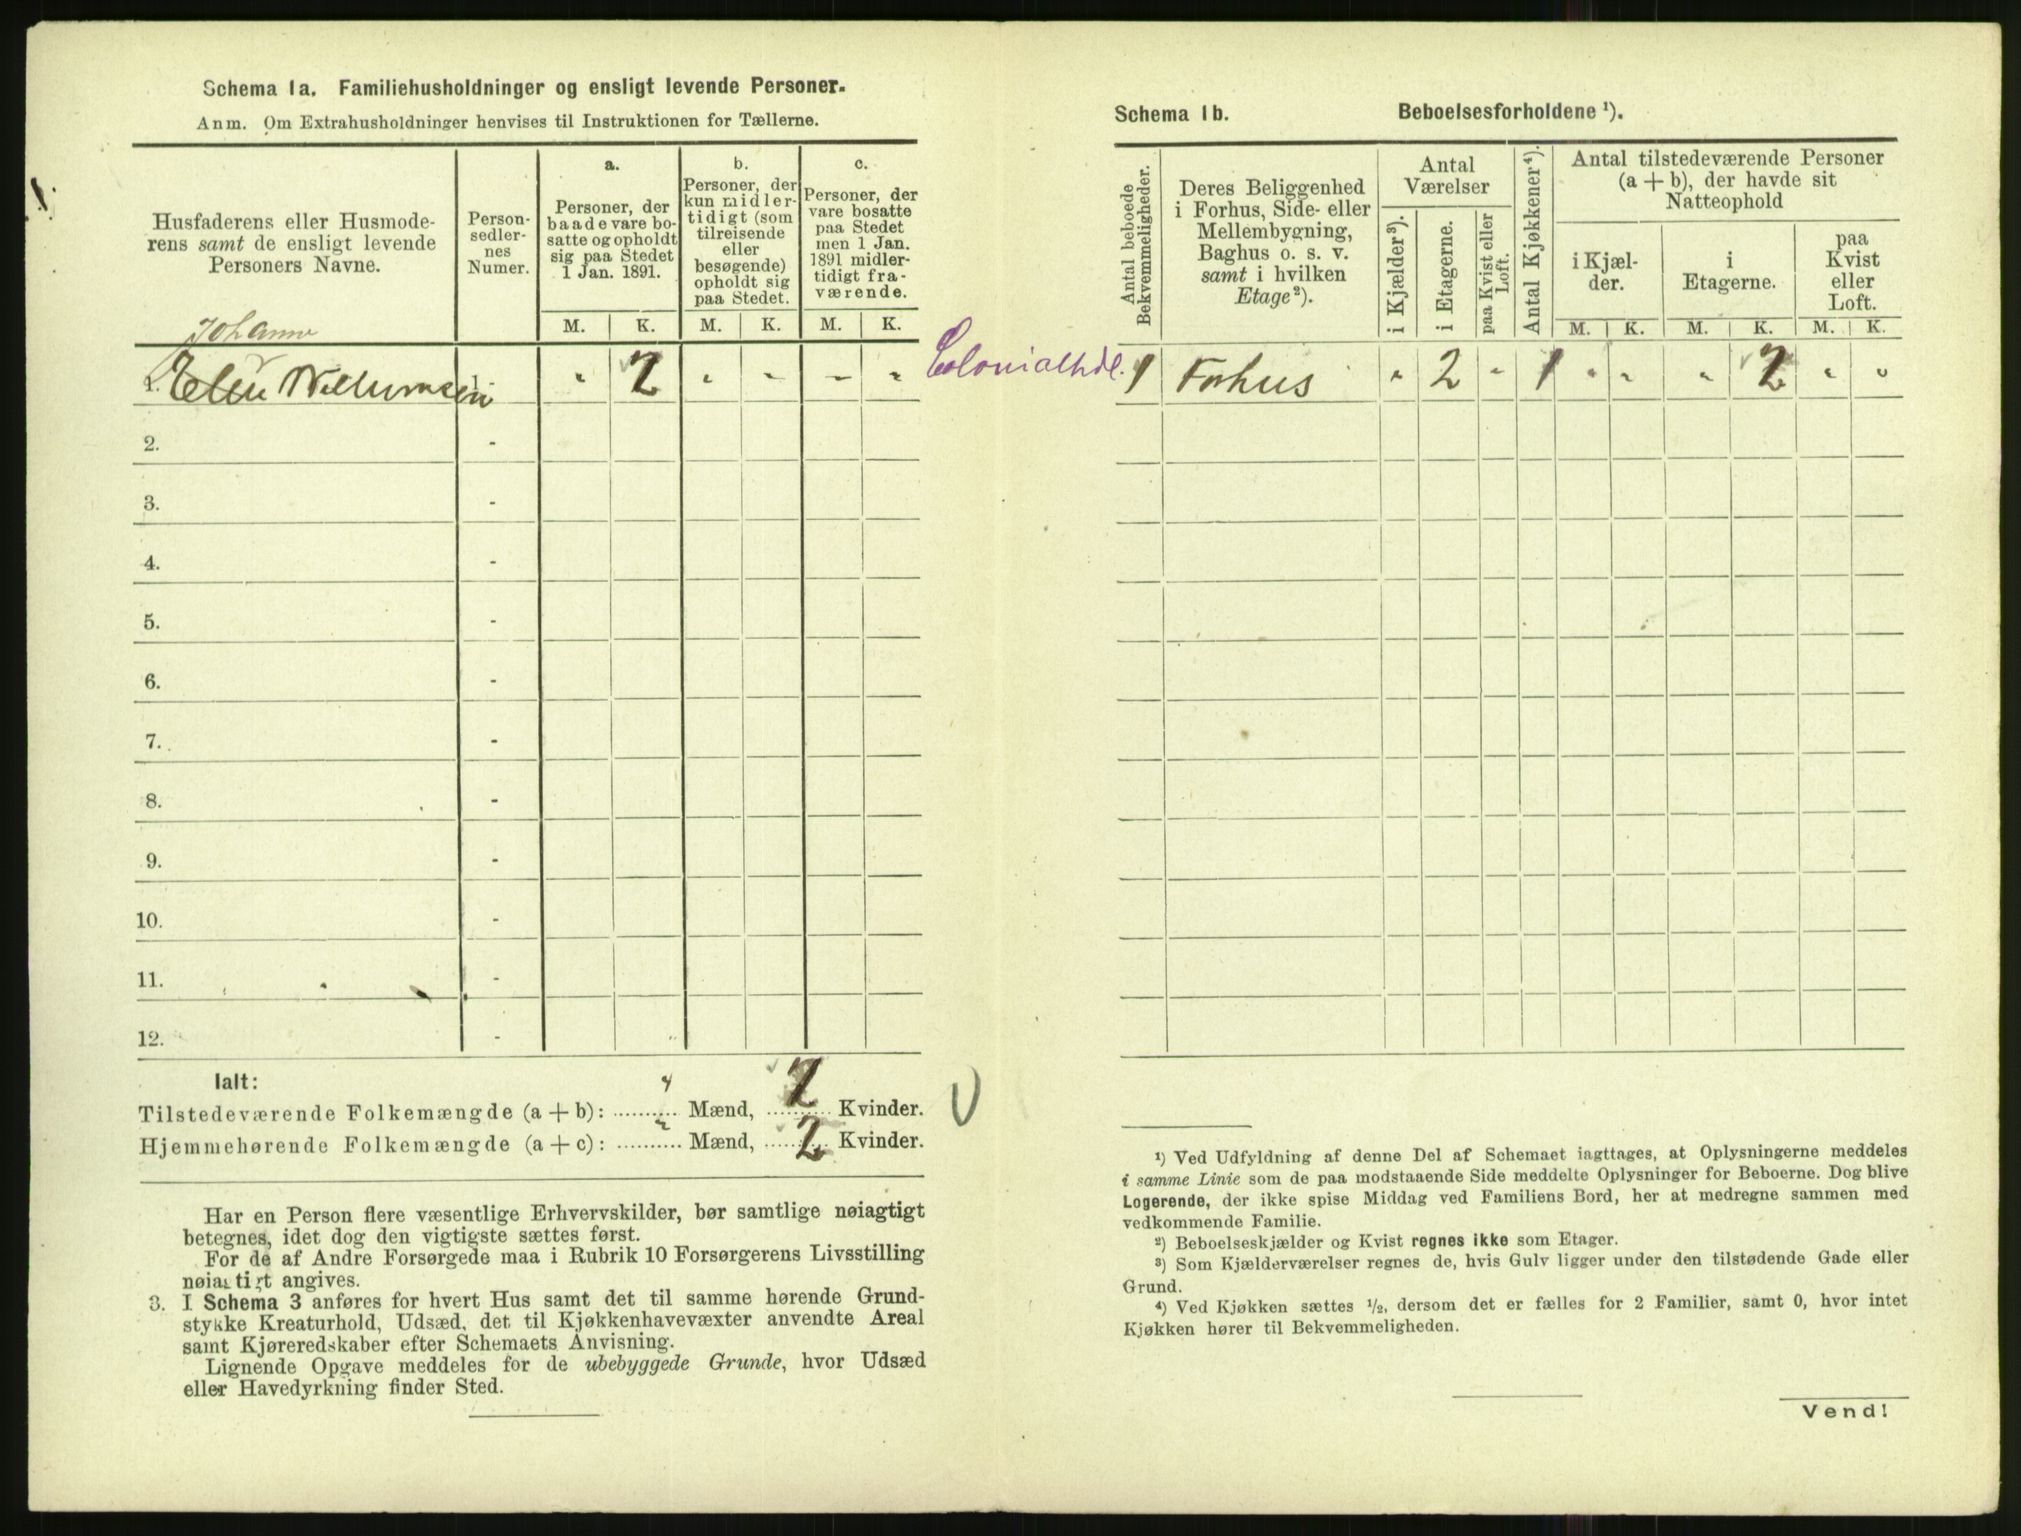 Schema 1a. Familiehusholdninger og ensligt levende Personer.
Anm. Om Extrahusholdninger henvises til Instruktionen for Tællerne.
Husfaderens eller Husmoderens samt de ensligt levende Personers Navne.
Personsedlernes Numer.
a.
Personer, der baade vare bosatte og opholdt sig paa Stedet 1 Jan. 1891.
b.
Personer, der kun midlertidigt (som tilreisende eller besøgende) opholdt sig paa Stedet.
c.
Personer, der vare bosatte paa Stedet men 1 Jan. 1891 midlertidigt fraværende.
M. K. M. K. M. K.
Johanne
1. 1 - " 2 " - - " Colonialhdl.
2. -
3. -
4. -
5. -
6. -
7. -
8. -
9. -
10. -
11. -
12. -
Ialt:
Tilstedeværende Folkemængde (a + b): .......... Mænd, 2 Kvinder.
Hjemmehørende Folkemængde (a + c): .......... Mænd, 2 Kvinder.
Har en Person flere væsentlige Erhvervskilder, bør samtlige nøiagtigt
betegnes, idet dog den vigtigste sættes først.
For de af Andre Forsørgede maa i Rubrik 10 Forsørgerens Livsstilling
nøiagtigt angives.
3. I Schema 3 anføres for hvert Hus samt det til samme hørende Grund-
stykke Kreaturhold, Udsæd, det til Kjøkkenhavevæxter anvendte Areal
samt Kjøreredskaber efter Schemaets Anvisning.
Lignende Opgave meddeles for de ubebyggede Grunde, hvor Udsæd
eller Havedyrkning finder Sted.
Schema 1b. Beboelsesforholdene ¹).
Antal beboede Bekvemmeligheder.
Deres Beliggenhed i Forhus, Side- eller Mellembygning, Baghus o. s. v. samt i hvilken Etage²).
Antal Værelser
i Kjælder³).
i Etagerne.
paa Kvist eller Loft.
Antal Kjøkkener⁴).
Antal tilstedeværende Personer (a + b), der havde sit Natteophold
i Kjælder.
i Etagerne.
paa Kvist eller Loft.
M. K. M. K. M. K.
1 Forhus " 2 - 1 " " " 2 " "
¹) Ved Udfyldning af denne Del af Schemaet iagttages, at Oplysningerne meddeles
i samme Linie som de paa modstaaende Side meddelte Oplysninger for Beboerne. Dog blive
Logerende, der ikke spise Middag ved Familiens Bord, her at medregne sammen med
vedkommende Familie.
²) Beboelseskjælder og Kvist regnes ikke som Etager.
³) Som Kjælderværelser regnes de, hvis Gulv ligger under den tilstødende Gade eller
Grund.
⁴) Ved Kjøkken sættes ¹/₂, dersom det er fælles for 2 Familier, samt 0, hvor intet
Kjøkken hører til Bekvemmeligheden.
Vend!